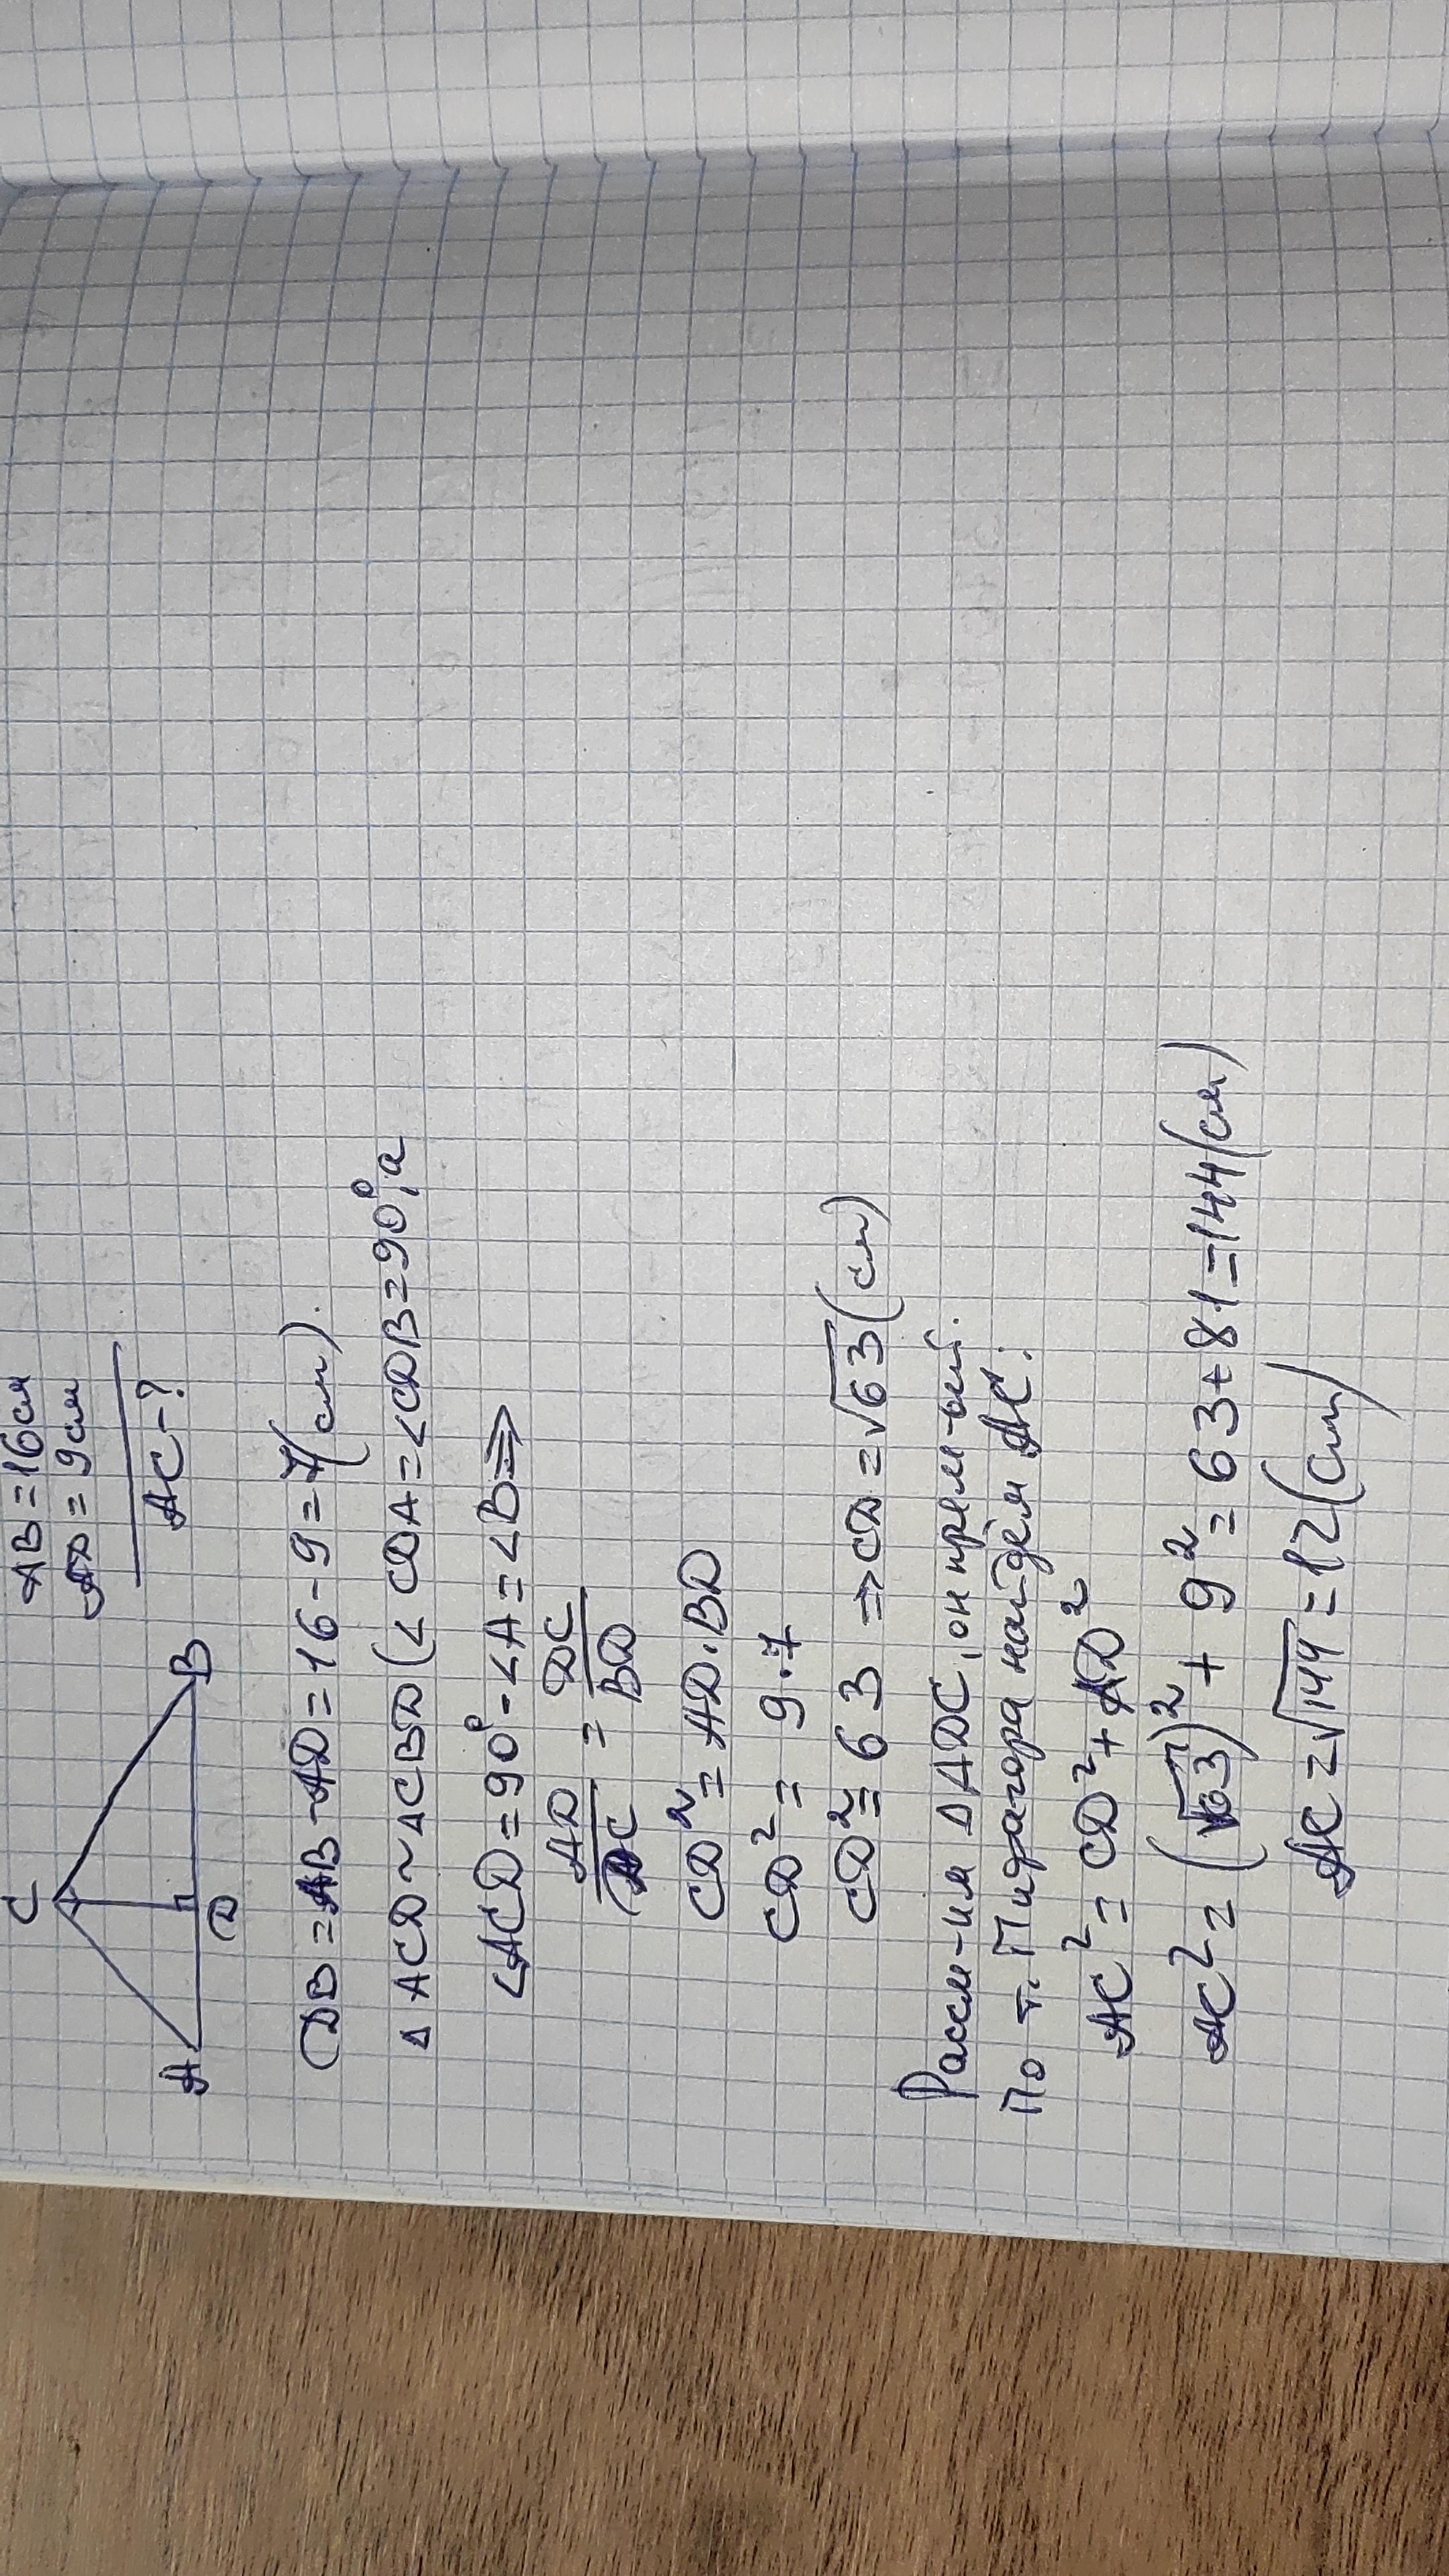 AB = 16 см
AD = 9 см
AC - ?
C
A
D
B
DB = AB - AD = 16 - 9 = 7 (см).
Δ ACD ~ Δ CBD (∠ CDA = ∠CDB = 90°, а
∠ACD = 90° - ∠A = ∠B ⇒
AD/DC = DC/BD
CD² = AD · BD
CD² = 9 · 7
CD² = 63 ⇒ CD = √63 (см)
Рассм-им Δ ADC, он прям-ый.
По т. Пидагора найдём AC:
AC² = CD² + AD²
AC² = (√63)² + 9² = 63 + 81 = 144 (см)
AC = √144 = 12 (см)